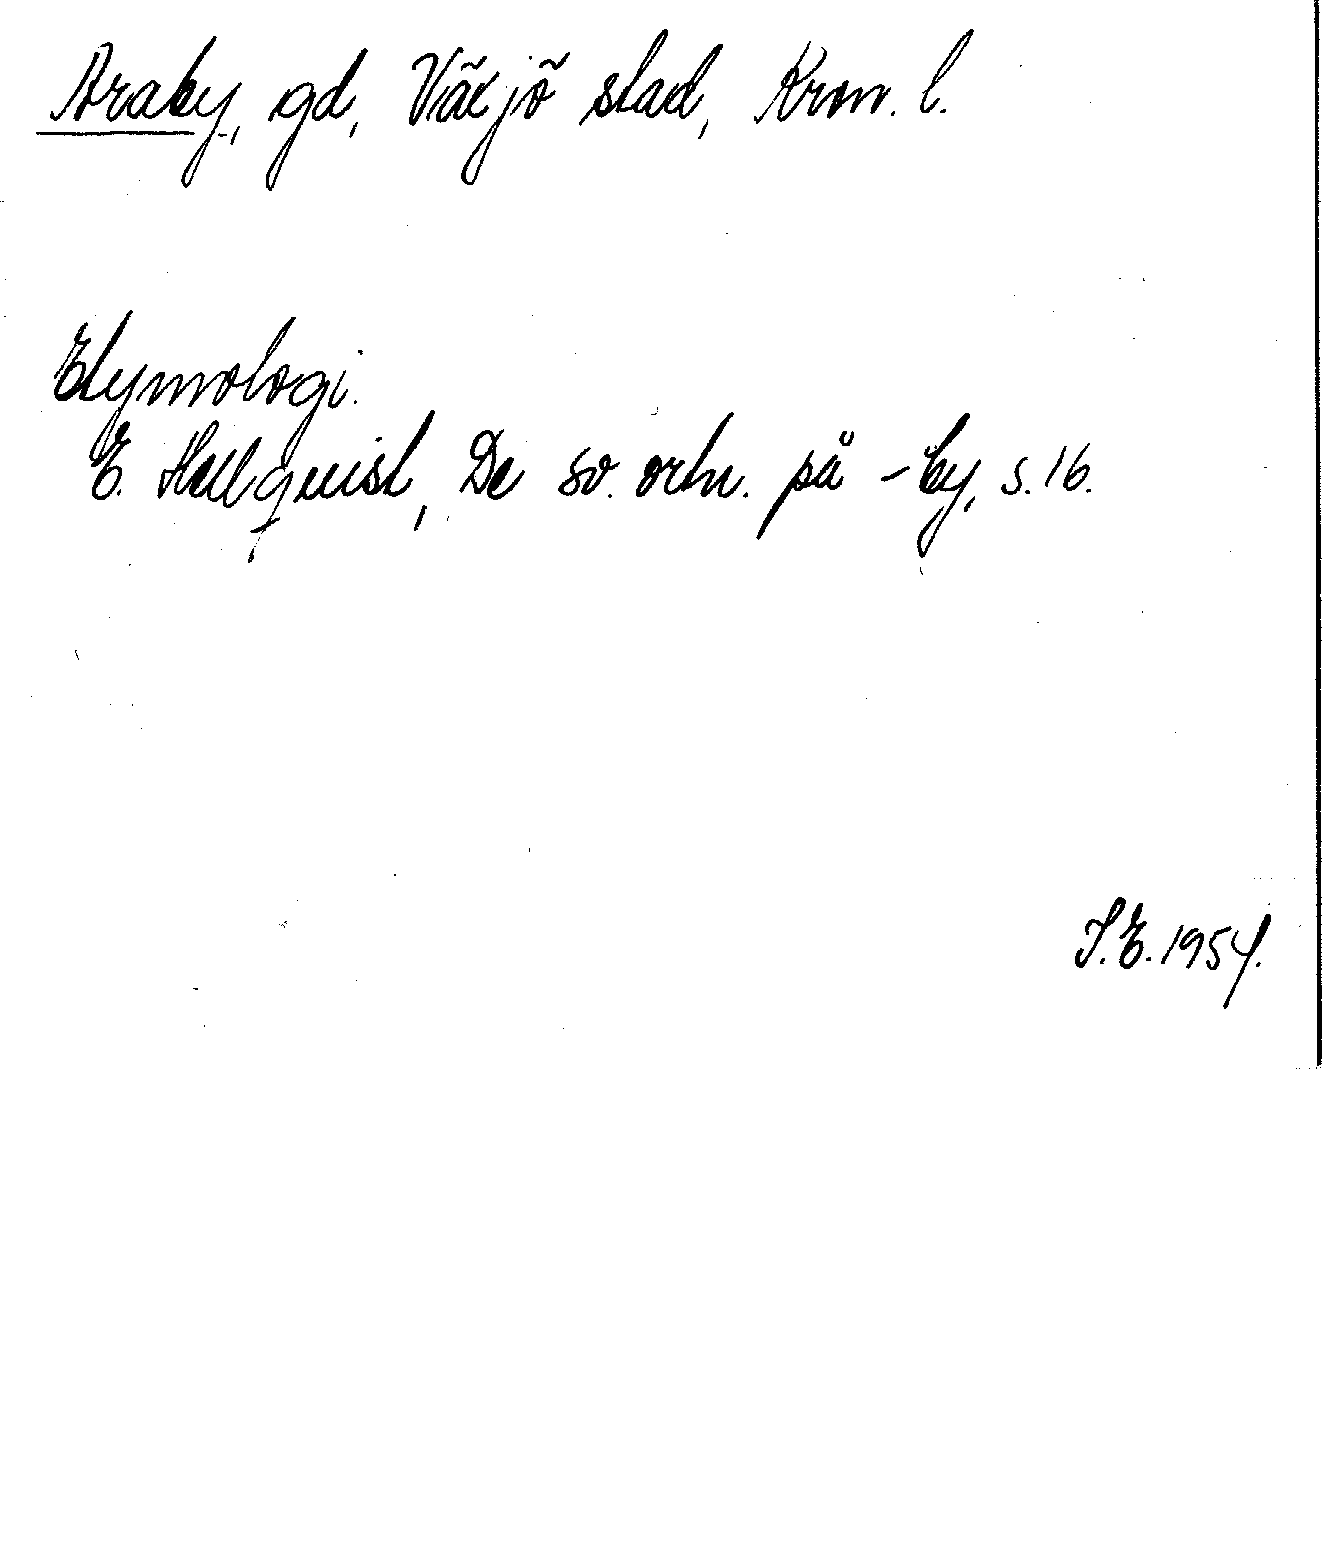 Araby, gd, Växjö stad, Kron. l.
Etymologi.
E. Hellquist, De sv. ortn. på -by, s. 16.
S.E. 1954.